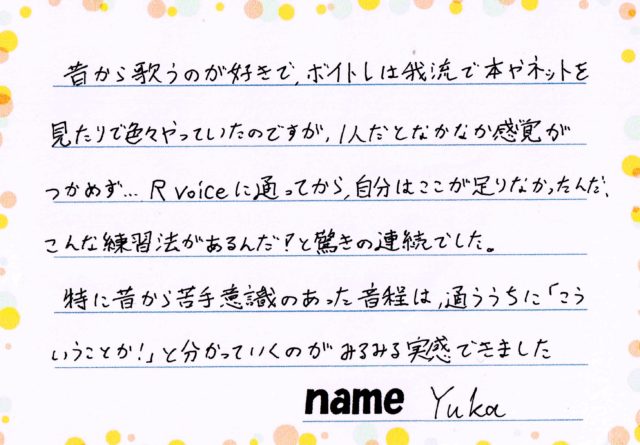 昔から歌うのが好きで、ボイトレは我流で本やネットを
見たりで色々やっていたのですが、1人だとなかなか感覚が
つかめず… R voiceに通ってから、自分はここが足りなかったんだ、
こんな練習法があるんだ?と驚きの連続でした。
特に昔から苦手意識のあった音程は、通ううちに「こう
いうことか!」と分かっていくのがみるみる実感できました
name Yuka